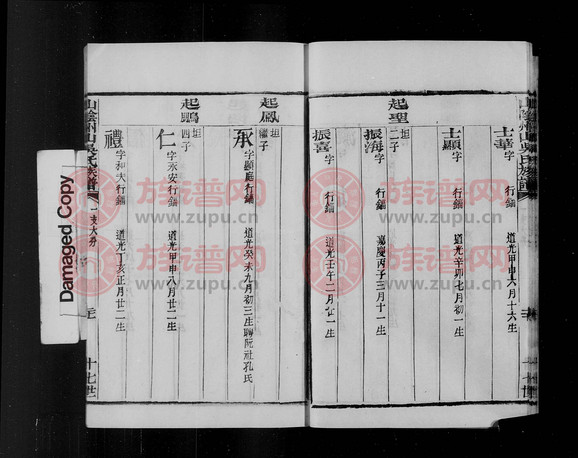 山陰州山吳氏族譜
士華 字 行鏞 道光甲申六月十六生
士顯 字 行鏞 道光辛卯七月初一生
起聖 坦二子
振海 字 行鏞 嘉慶丙子三月十一生
振喜 字 行鏞 道光壬午二月廿一生
起鳳 坦繼子
承 字顯庭行鏞 道光癸未九月初三生聘阮社孔氏
起鵬 坦四子
仁 字永安行鏞 道光甲申八月廿二生
禮 字和大行鏞 道光丁亥正月廿二生
山陰州山吳氏族譜
一支大分
十七世
Damaged Copy
族谱网
www.zupu.cn
族谱网
www.zupu.cn
族谱网
www.zupu.cn